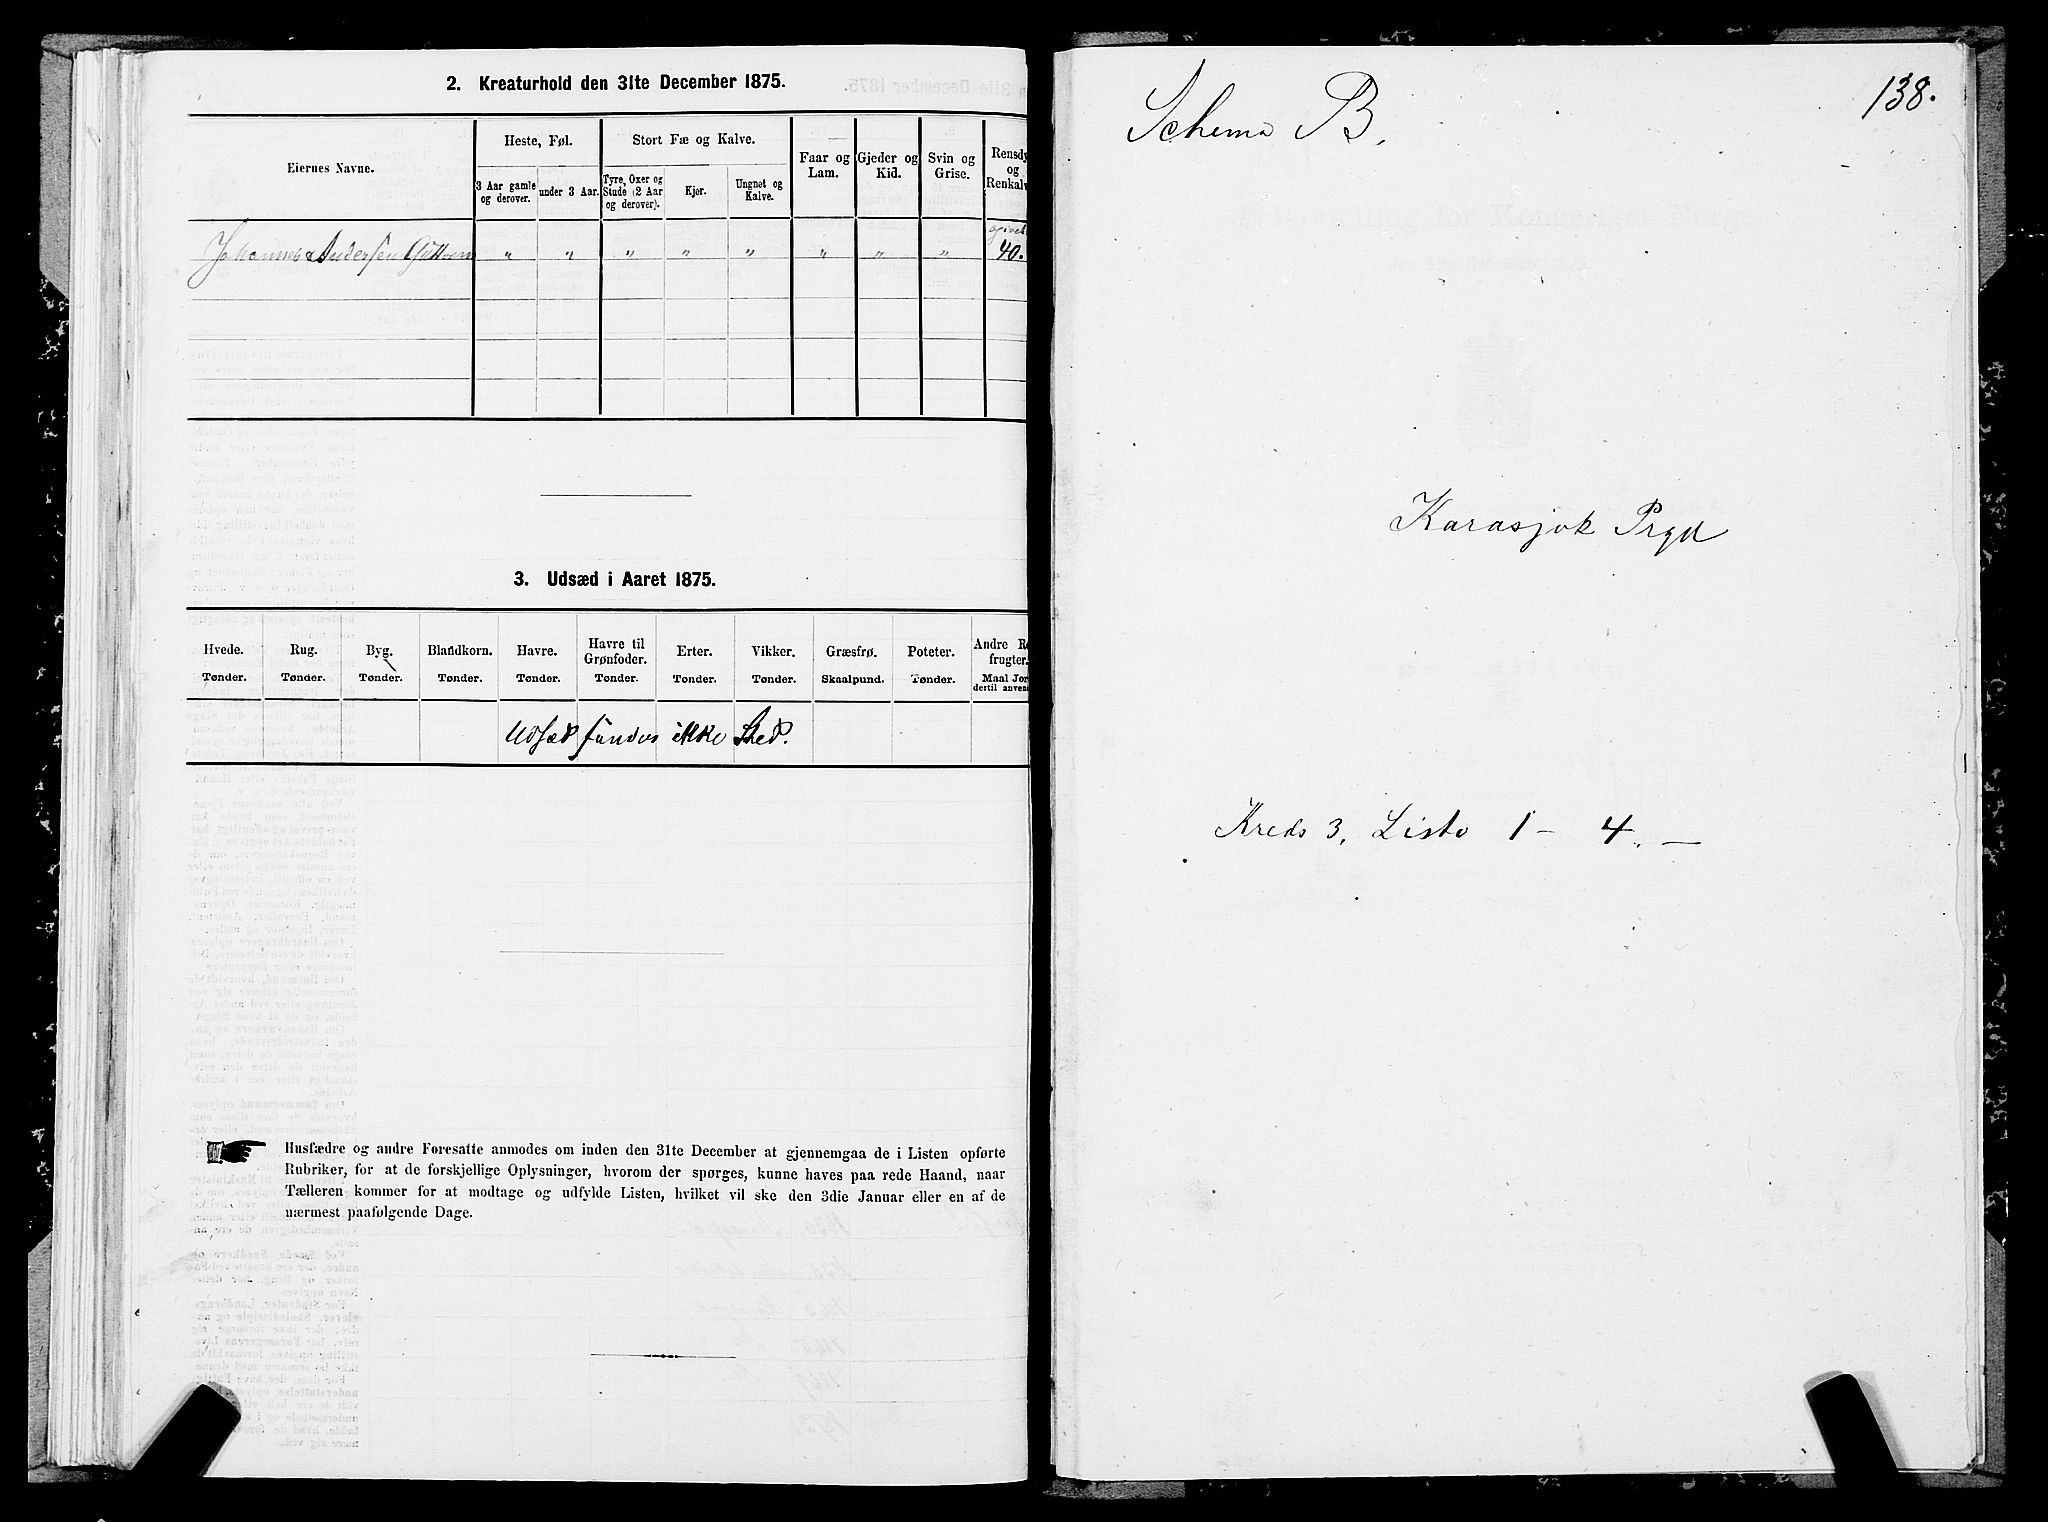 2. Kreaturhold den 31te December 1875.
Eiernes Navne.
Heste, Føl.
3 Aar gamle og derover.
under 3 Aar.
Stort Fæ og Kalve.
Tyre, Oxer og Stude (2 Aar og derover).
Kjør.
Ungnøt og Kalve.
Faar og Lam.
Gjeder og Kid.
Svin og Grise.
Rensdy
og
Renkalv
Johannes Andersen „ „ „ „ „ „ „ „ 40.
3. Udsæd i Aaret 1875.
Hvede. Tønder.
Rug. Tønder.
Byg. Tønder.
Blandkorn. Tønder.
Havre. Tønder.
Havre til Grønfoder. Tønder.
Erter. Tønder.
Vikker. Tønder.
Græsfrø. Skaalpund.
Poteter. Tønder.
Andre Ro
frugter.
Maal Jor
dertil anven
Udsæd findes ikke Sted.
Husfædre og andre Foresatte anmodes om inden den 31te December at gjennemgaa de i Listen opførte
Rubriker, for at de forskjellige Oplysninger, hvorom der spørges, kunne haves paa rede Haand, naar
Tælleren kommer for at modtage og udfylde Listen, hvilket vil ske den 3die Januar eller en af de
nærmest paafølgende Dage.
138.
Schema B.
Karasjok Prgd
Kreds 3, Liste 1 – 4. —